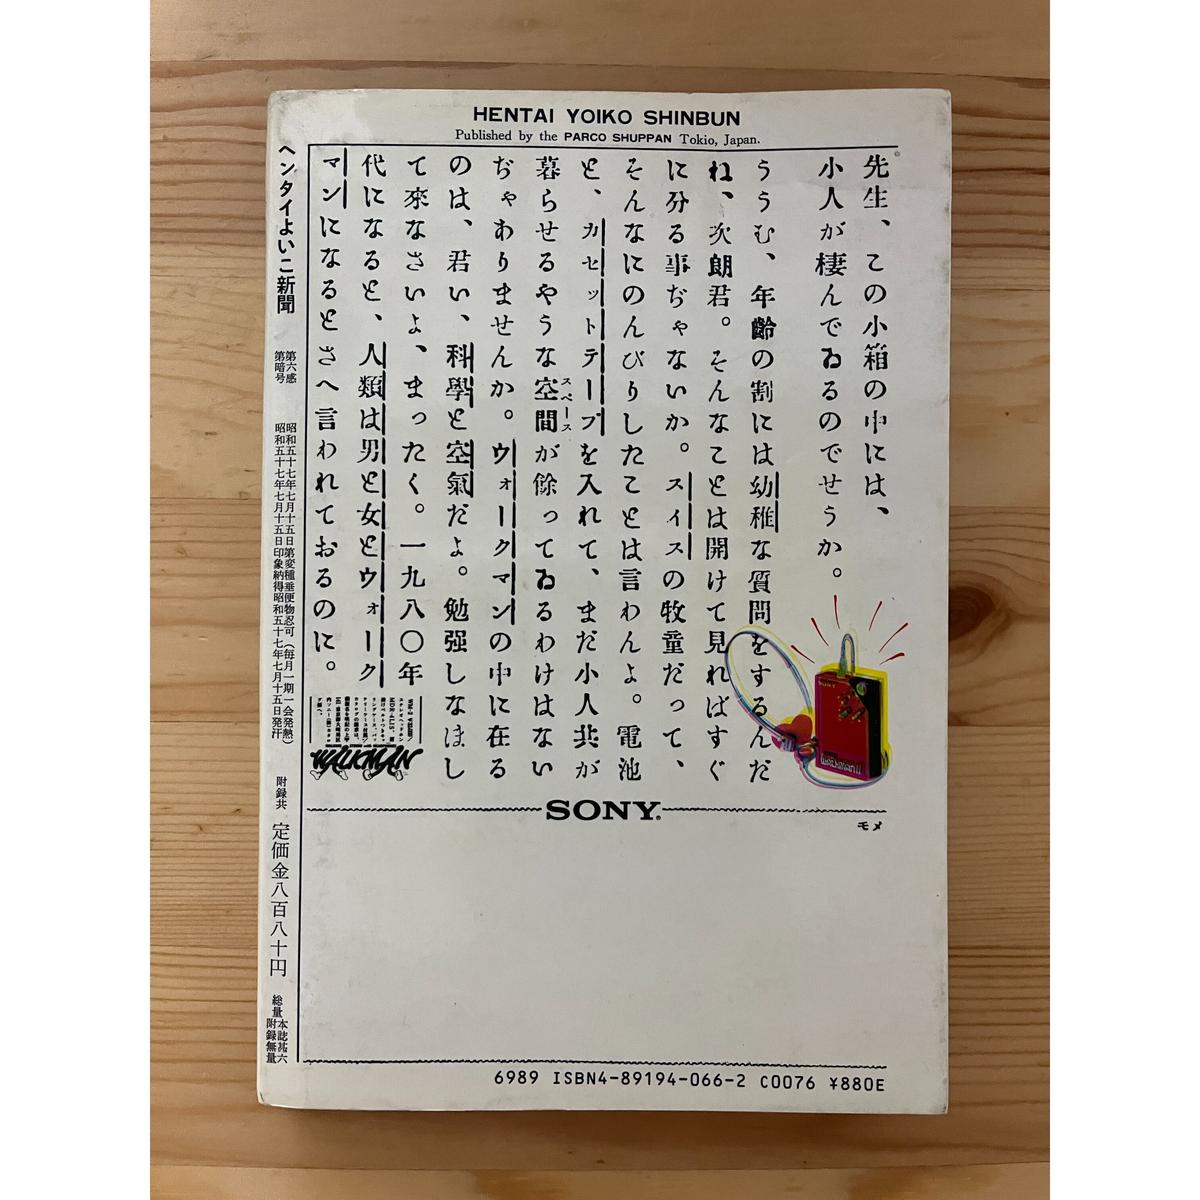 HENTAI YOIKO SHINBUN
Published by the PARCO SHUPPAN Tokio, Japan.
先生、この小箱の中には、
小人が棲んでゐるのでせうか。
ううむ、年齢の割には幼稚な質問をするんだ
ね、次朗君。そんなことは開けて見ればすぐ
に分る事ぢゃないか。スイスの牧童だって、
そんなにのんびりしたことは言わんよ。電池
と、カセットテープを入れて、まだ小人共が
暮らせるやうな空間が餘ってゐるわけはない
スペース
ぢゃありませんか。ウォークマンの中に在る
のは、君い、科學と空氣だよ。勉强しなほし
て來なさいよ、まったく。一九八〇年
代になると、人類は男と女とウォーク
マンになるとさへ言われておるのに。
SONY
WALKMAN II
WALKMAN
SONY®
モメ
6989 ISBN4-89194-066-2 C0076 ¥880E
ヘンタイよいこ新聞
第六感
第暗号
昭和五十七年七月十五日第変種垂便物忍可（毎月一期一会発熱）
昭和五十七年七月十五日印象納得昭和五十七年七月十五日発汗
附録共
定価金八百八十円
総量
本誌甚六
附録無量